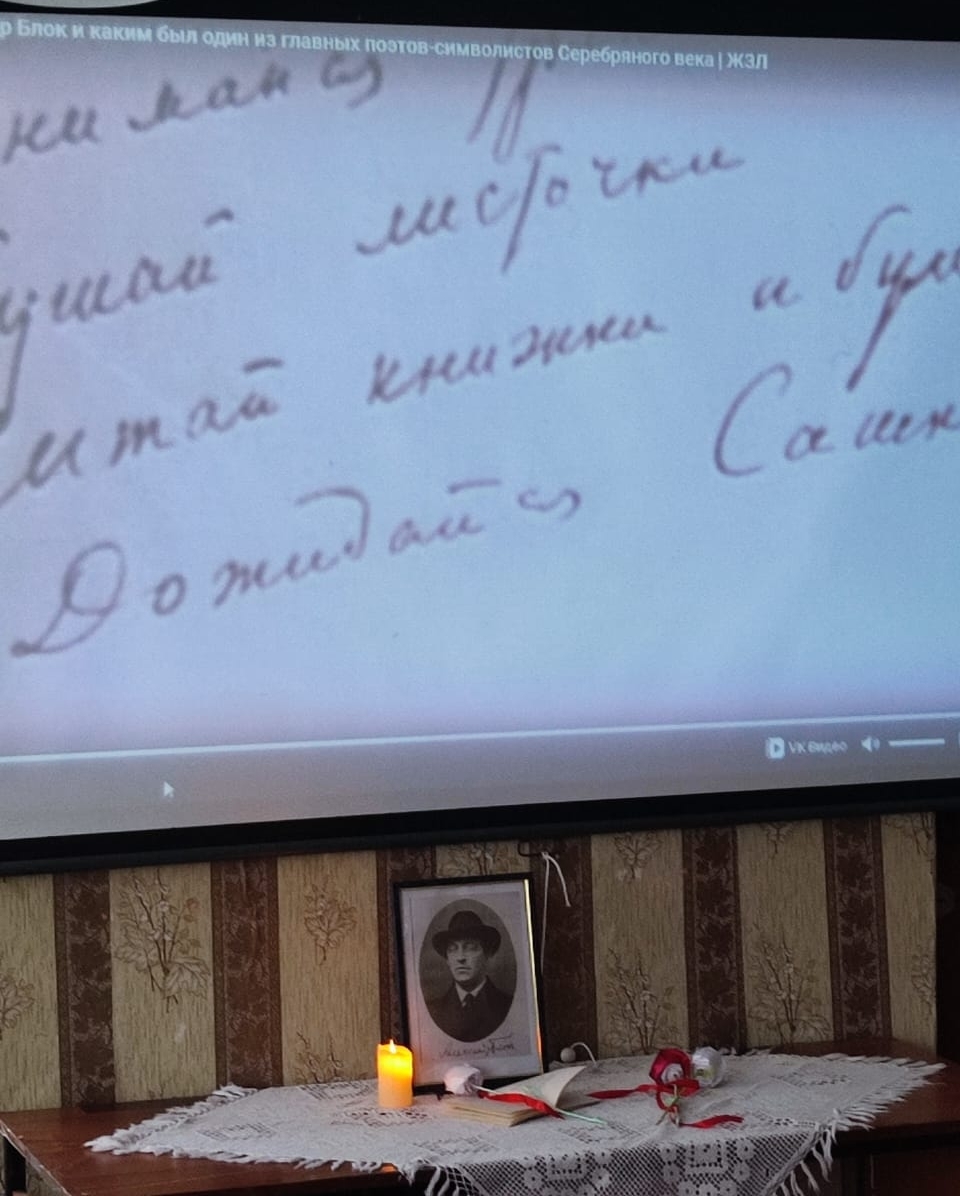 р Блок и каким был один из главных поэтов-символистов Серебряного века | ЖЗЛ
нимайся
ушай листочки
итай книжки и бум
Дожидайся Сашк
VK Видео